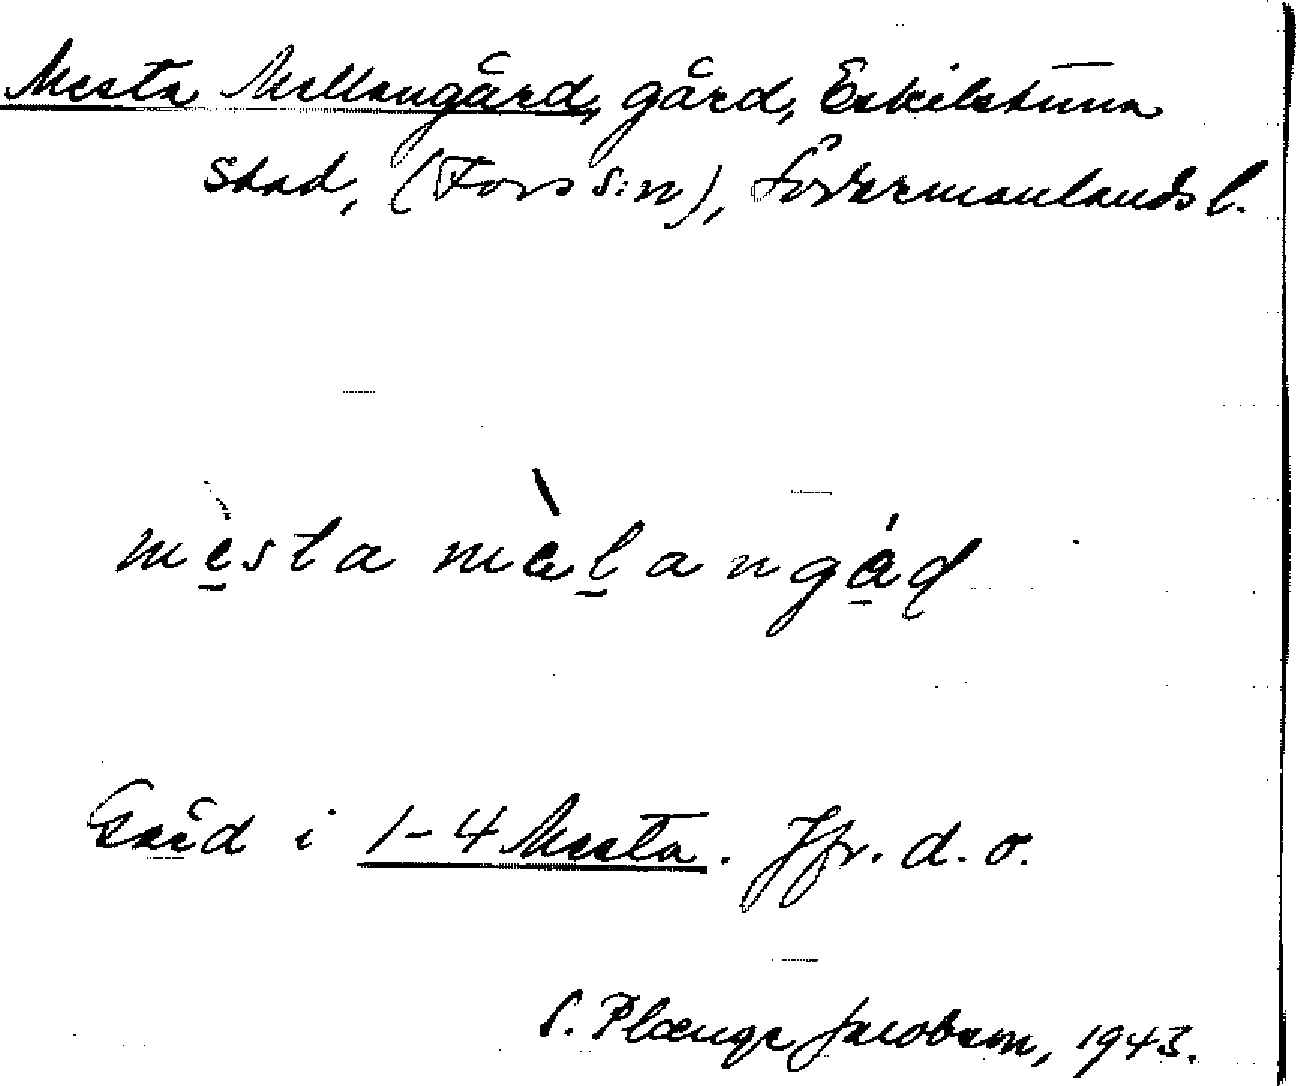 Mesta Mellangård, gård, Eskilstuna
stad, (Fors s:n), Södermanlands l.
mè̱sta mèḻangá̱ḍ
Gård i 1-4 Mesta. Jfr. d. o.
S. Plænge Jacobson, 1943.